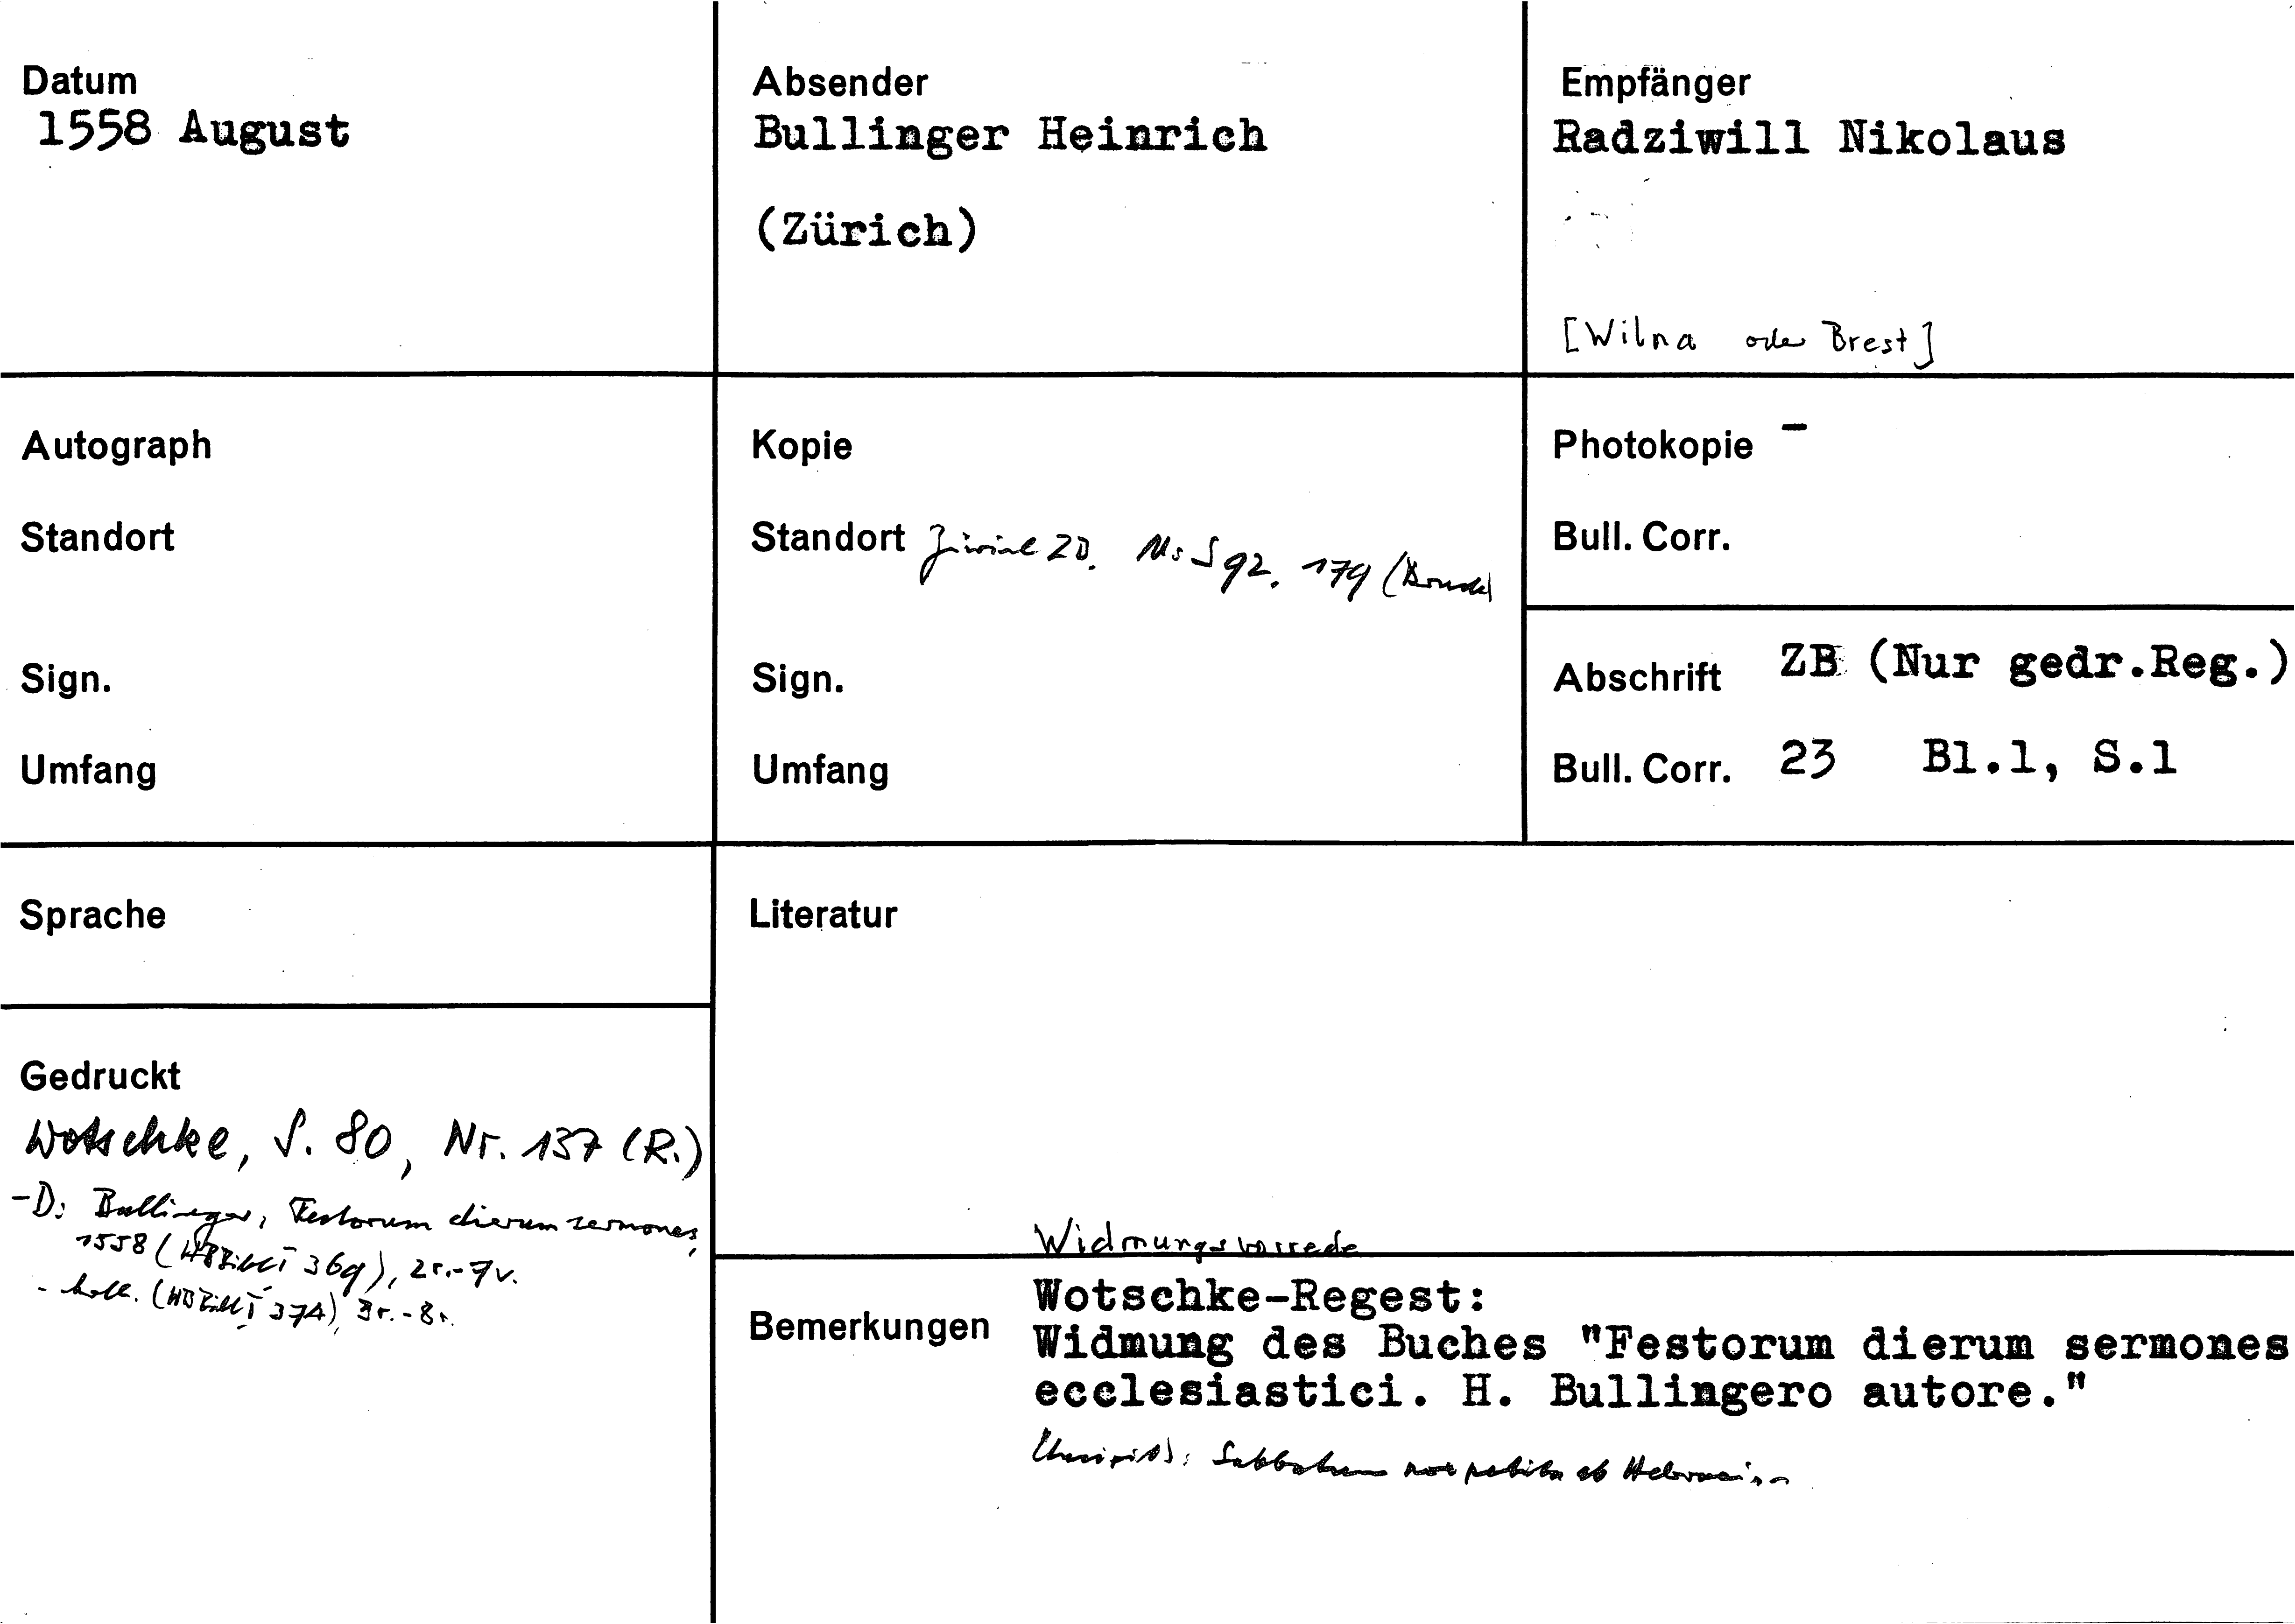 Datum
1558 August
Absender
Bullinger Heinrich
(Zürich)
Empfänger
Radziwill Nikolaus
[Wilna oder Brest]
Autograph
Standort
Sign.
Umfang
Kopie
Standort Zürich ZB. Ms S 92. 179 (Druck)
Sign.
Umfang
Photokopie -
Bull. Corr.
Abschrift ZB (Nur gedr.Reg.)
Bull. Corr. 23 Bl.1, S.1
Sprache
Literatur
Gedruckt
Wotschke, S. 80, Nr. 137 (R.)
-D: Bullinger, Festorum dierum sermones,
1558 (HBBibl I 369), 2r.-7v.
- holl. (HBBibl I 374), 3r.-8r.
Widmungsvorrede
Bemerkungen
Wotschke-Regest:
Widmung des Buches "Festorum dierum sermones
ecclesiastici. H. Bullingero autore."
Sabbatum ab